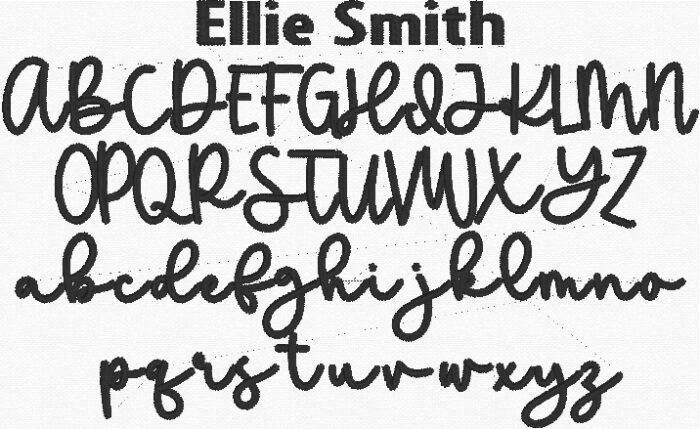 Ellie Smith
ABCDEFGHIJKLMN
OPQRSTUVWXYZ
abcdefghijklmno
pqrstuvwxyz